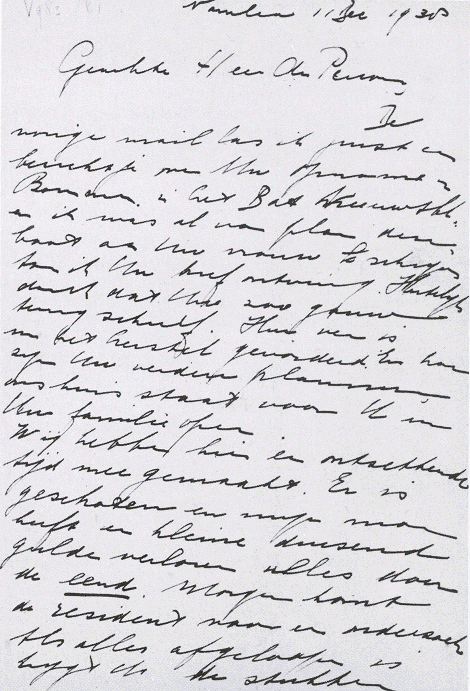 11 Dec 1938
Geachte Heer De
De
vorige mail las ik juist een
berichtje over Uw opname in
in het Bat. Nieuwsbl.
en ik was al van plan deze
boot aan Uw vrouw te schrijven
toen ik Uw brief ontving. Hartelijk
dank dat U zoo gauw
terug schreef. Hoe ver is
nu het herstel gevorderd en hoe
zijn Uw verdere plannen
ons huis staat voor U en
Uw familie open
Wij hebben hier een ontzettende
tijd mee gemaakt. Er is
geschoten en mijn man
heeft en kleine duizend
gulde verloren alles door
de eend. Morgen komt
de resident voor en onderzoek
Als alles afgeloopen is
krijgt U de stukken